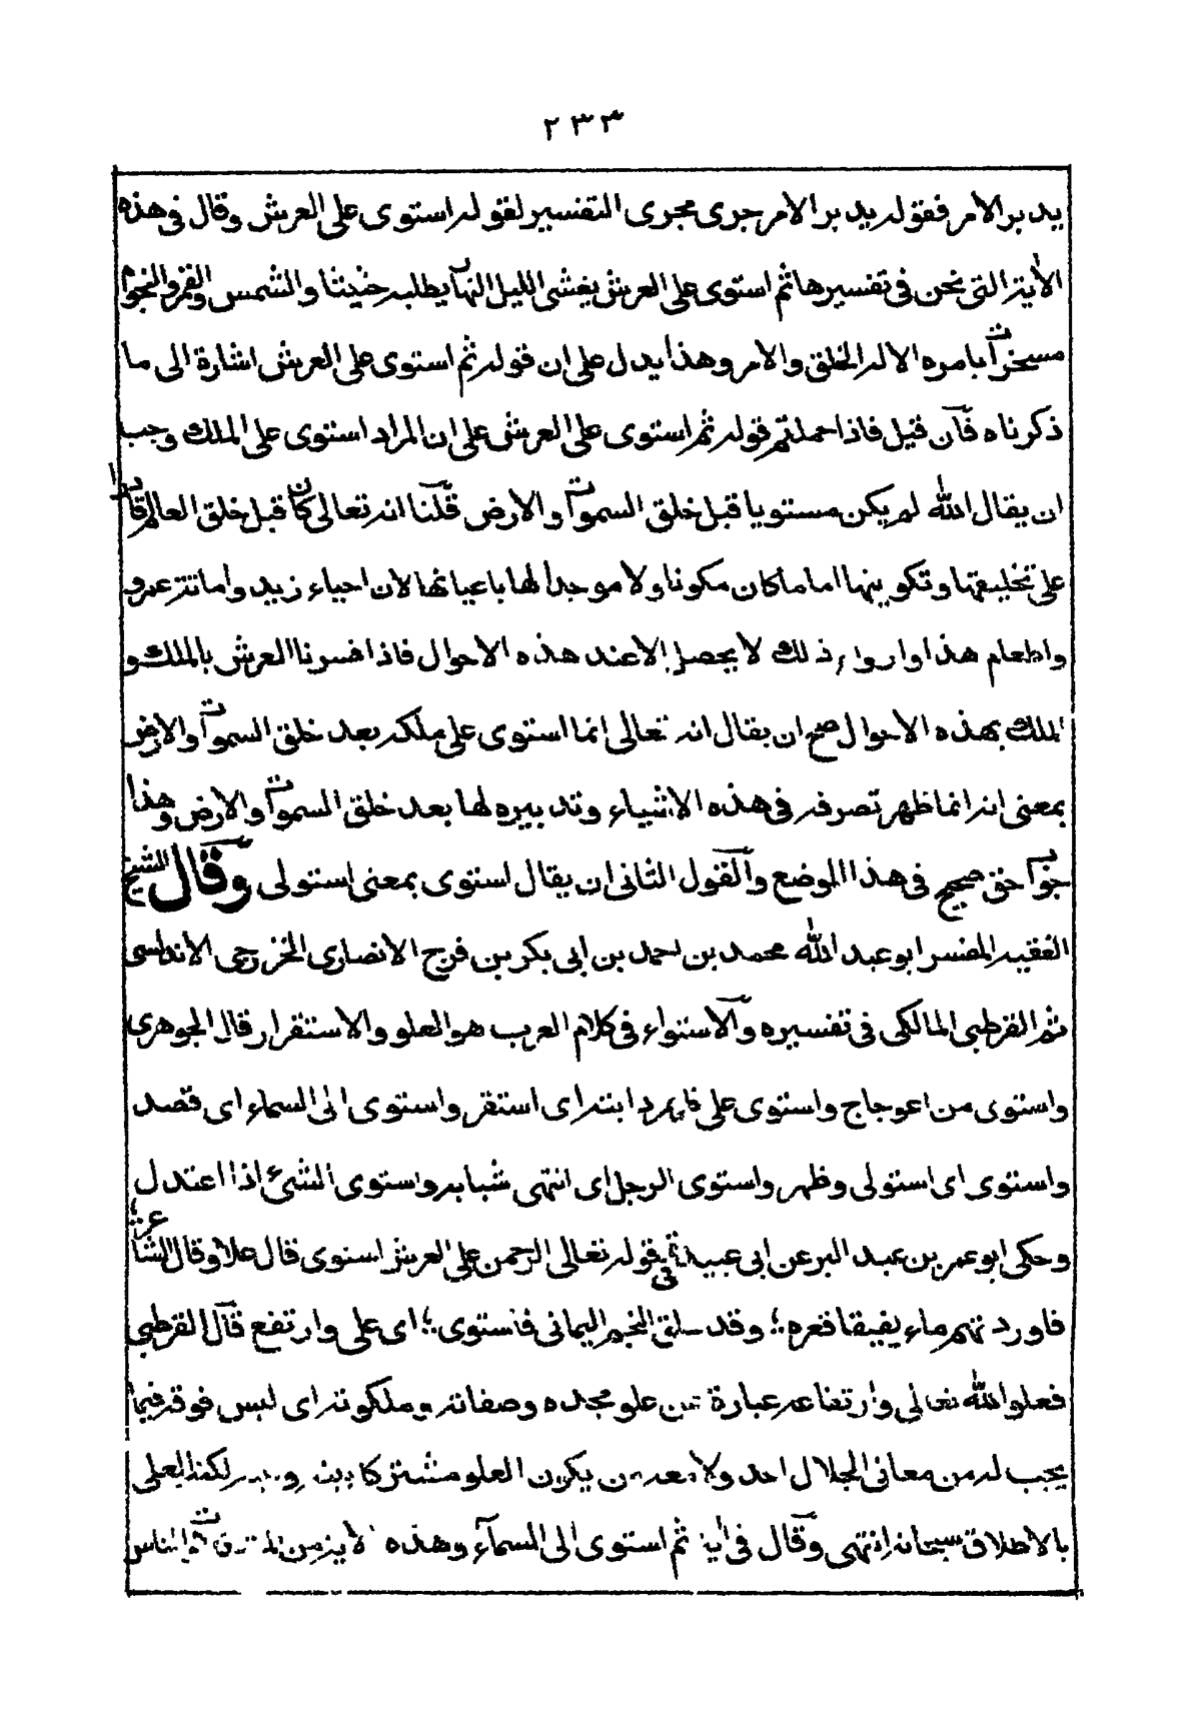 ٢٣٣
يدبر الامر فقوله يدبر الامر جرى مجرى التفسير لقوله استوى على العرش وقال فى هذه
الاية التى نحن فى تفسيرها ثم استوى على العرش يغشى الليل النهار يطلبه حثيثا والشمس والقمر والنجوم
مسخرات بامره الا له الخلق والامر وهذا يدل على ان قوله ثم استوى على العرش اشارة الى ما
ذكرناه فان قيل فاذا حملتم قوله ثم استوى على العرش على ان المراد استوى على الملك وجب
ان يقال الله لم يكن مستويا قبل خلق السموات والارض قلنا انه تعالى كان قبل خلق العالم قادرا
على تخليقها وتكوينها اما ما كان مكونا ولا موجدا لها باعيانها لان احياء زيد واماتة عمرو
واطعام هذا وارواء ذلك لا يحصل الا عند هذه الاحوال فاذا فسرنا العرش بالملك و
الملك بهذه الاحوال صح ان يقال انه تعالى انما استوى على ملكه بعد خلق السموات والارض
بمعنى انه انما ظهر تصرفه فى هذه الاشياء وتدبيره لها بعد خلق السموات والارض وهذا
جواب حق صحيح فى هذا الموضع والقول الثانى ان يقال استوى بمعنى استولى وقال الشيخ
الفقيه المفسر ابو عبد الله محمد بن احمد بن ابى بكر بن فرح الانصارى الخزرجى الاندلسى
ثم القرطبى المالكى فى تفسيره والاستواء فى كلام العرب هو العلو والاستقرار قال الجوهرى
واستوى من اعوجاج واستوى على ظهر دابته اى استقر واستوى الى السماء اى قصد
واستوى اى استولى وظهر واستوى الرجل اى انتهى شبابه واستوى الشئ اذا اعتدل
وحكى ابو عمر بن عبد البر عن ابى عبيدة فى قوله تعالى الرحمن على العرش استوى قال علا وقال الشاعر
فاوردتهم ماء بفيفا قفره ؛ وقد حلق النجم اليمانى فاستوى ؛ اى على وارتفع قال القرطبى
فعلو الله تعالى وارتفاعه عبارة عن علو مجده وصفاته وملكوته اى ليس فوقه فيما
يجب له من معانى الجلال احد ولا معه من يكون العلو مشتركا بينه وبينه لكنه العلى
بالاطلاق سبحانه انتهى وقال فى اية ثم استوى الى السماء وهذه الاية من المشكلات والناس